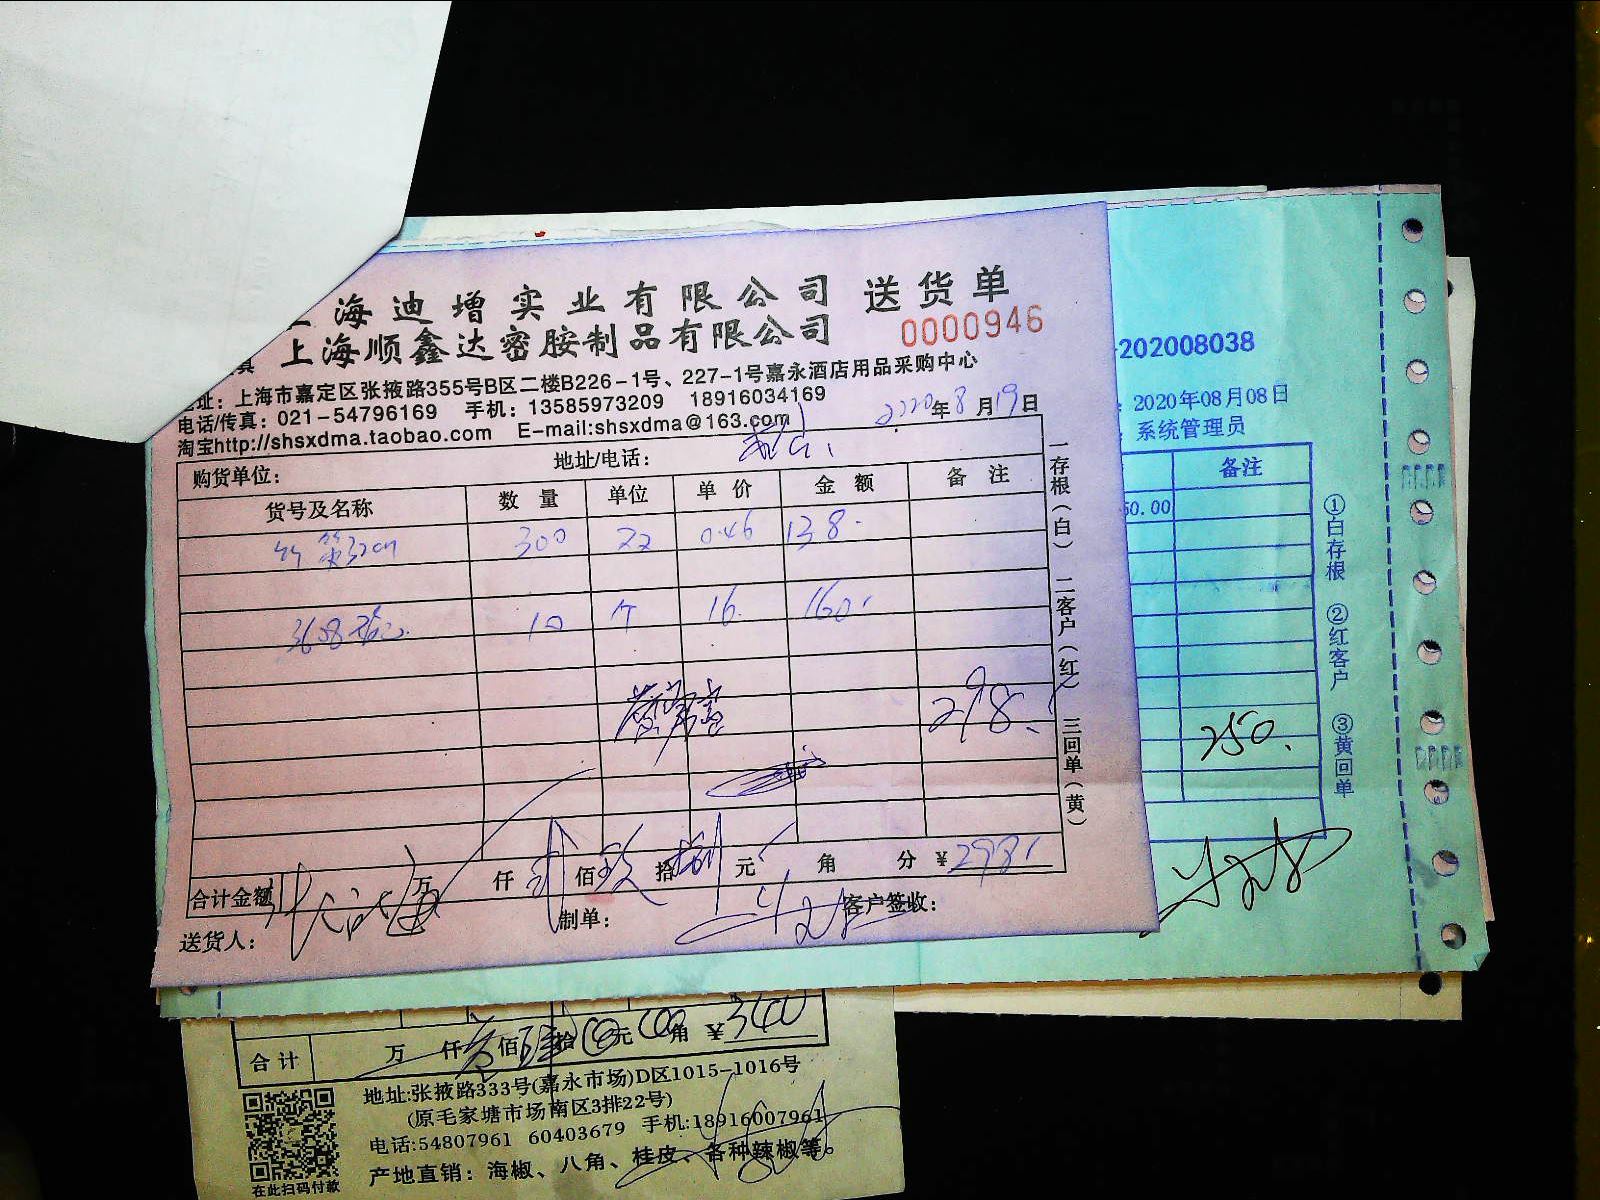 上海迪增实业有限公司 送货单
上海顺鑫达密胺制品有限公司 0000946
真
地址：上海市嘉定区张掖路355号B区二楼B226-1号、227-1号嘉永酒店用品采购中心
电话/传真：021-54796169 手机：13585973209 18916034169
淘宝http://shsxdma.taobao.com E-mail:shsxdma@163.com 2020年8月19日
购货单位： 地址/电话：
货号及名称 数量 单位 单价 金额 备注
300 0.46 138.
3608 10 个 16. 160.
298.
合计金额 万 仟 贰佰玖拾捌元 角 分 ¥298.
送货人： 制单： 客户签收：
一存根（白） 二客户（红） 三回单（黄）
202008038
2020年08月08日
系统管理员
备注
50.00
250.
①白存根 ②红客户 ③黄回单
合计 万 仟 叁佰 拾 元 角 ¥340
地址:张掖路333号(嘉永市场)D区1015-1016号
(原毛家塘市场南区3排22号)
电话:54807961 60403679 手机:18916007961
产地直销：海椒、八角、桂皮、各种辣椒等。
在此扫码付款